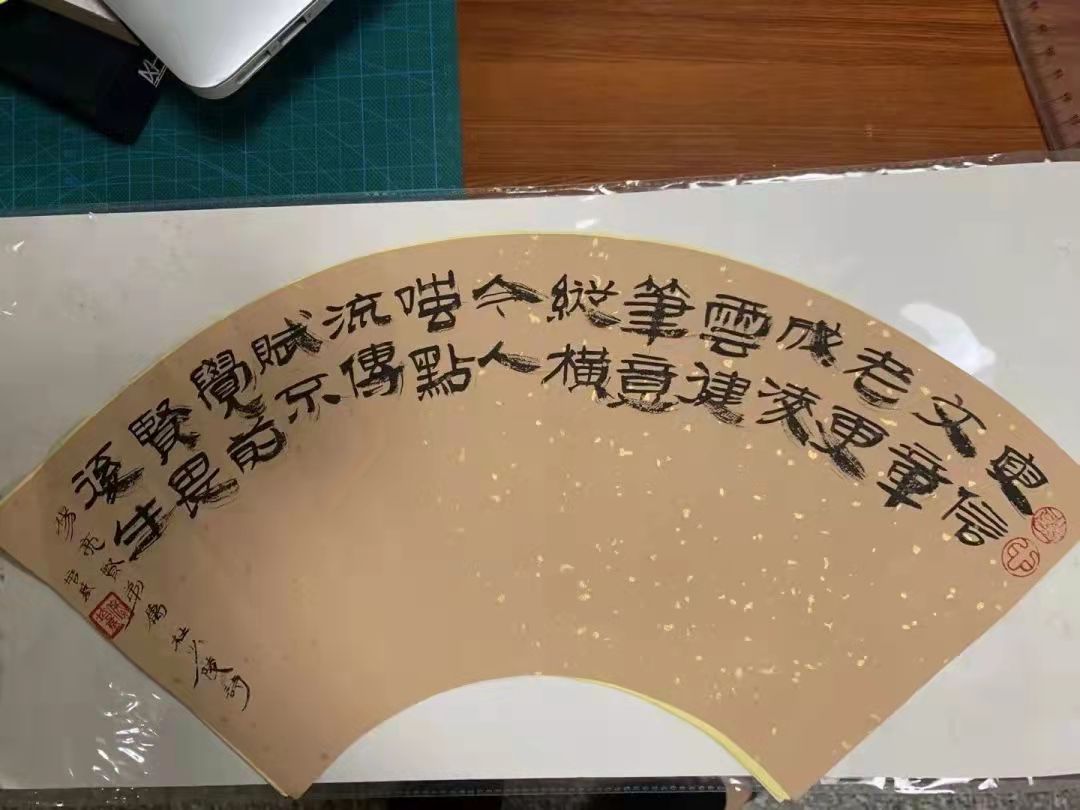 庾信
文章
老更
成凌
雲健
筆意
縱橫
今人
嗤點
流傳
賦不
覺前
賢畏
後生
亮賢弟屬杜少陵詩